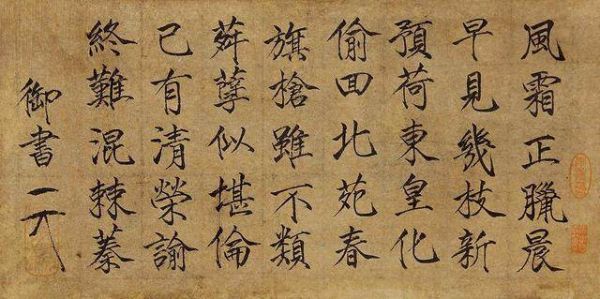 風霜正臘晨
早見幾枝新
預荷東皇化
偷回北苑春
旗搶雖不類
荈孽似堪倫
已有清榮諭
終難混棘蓁
御書